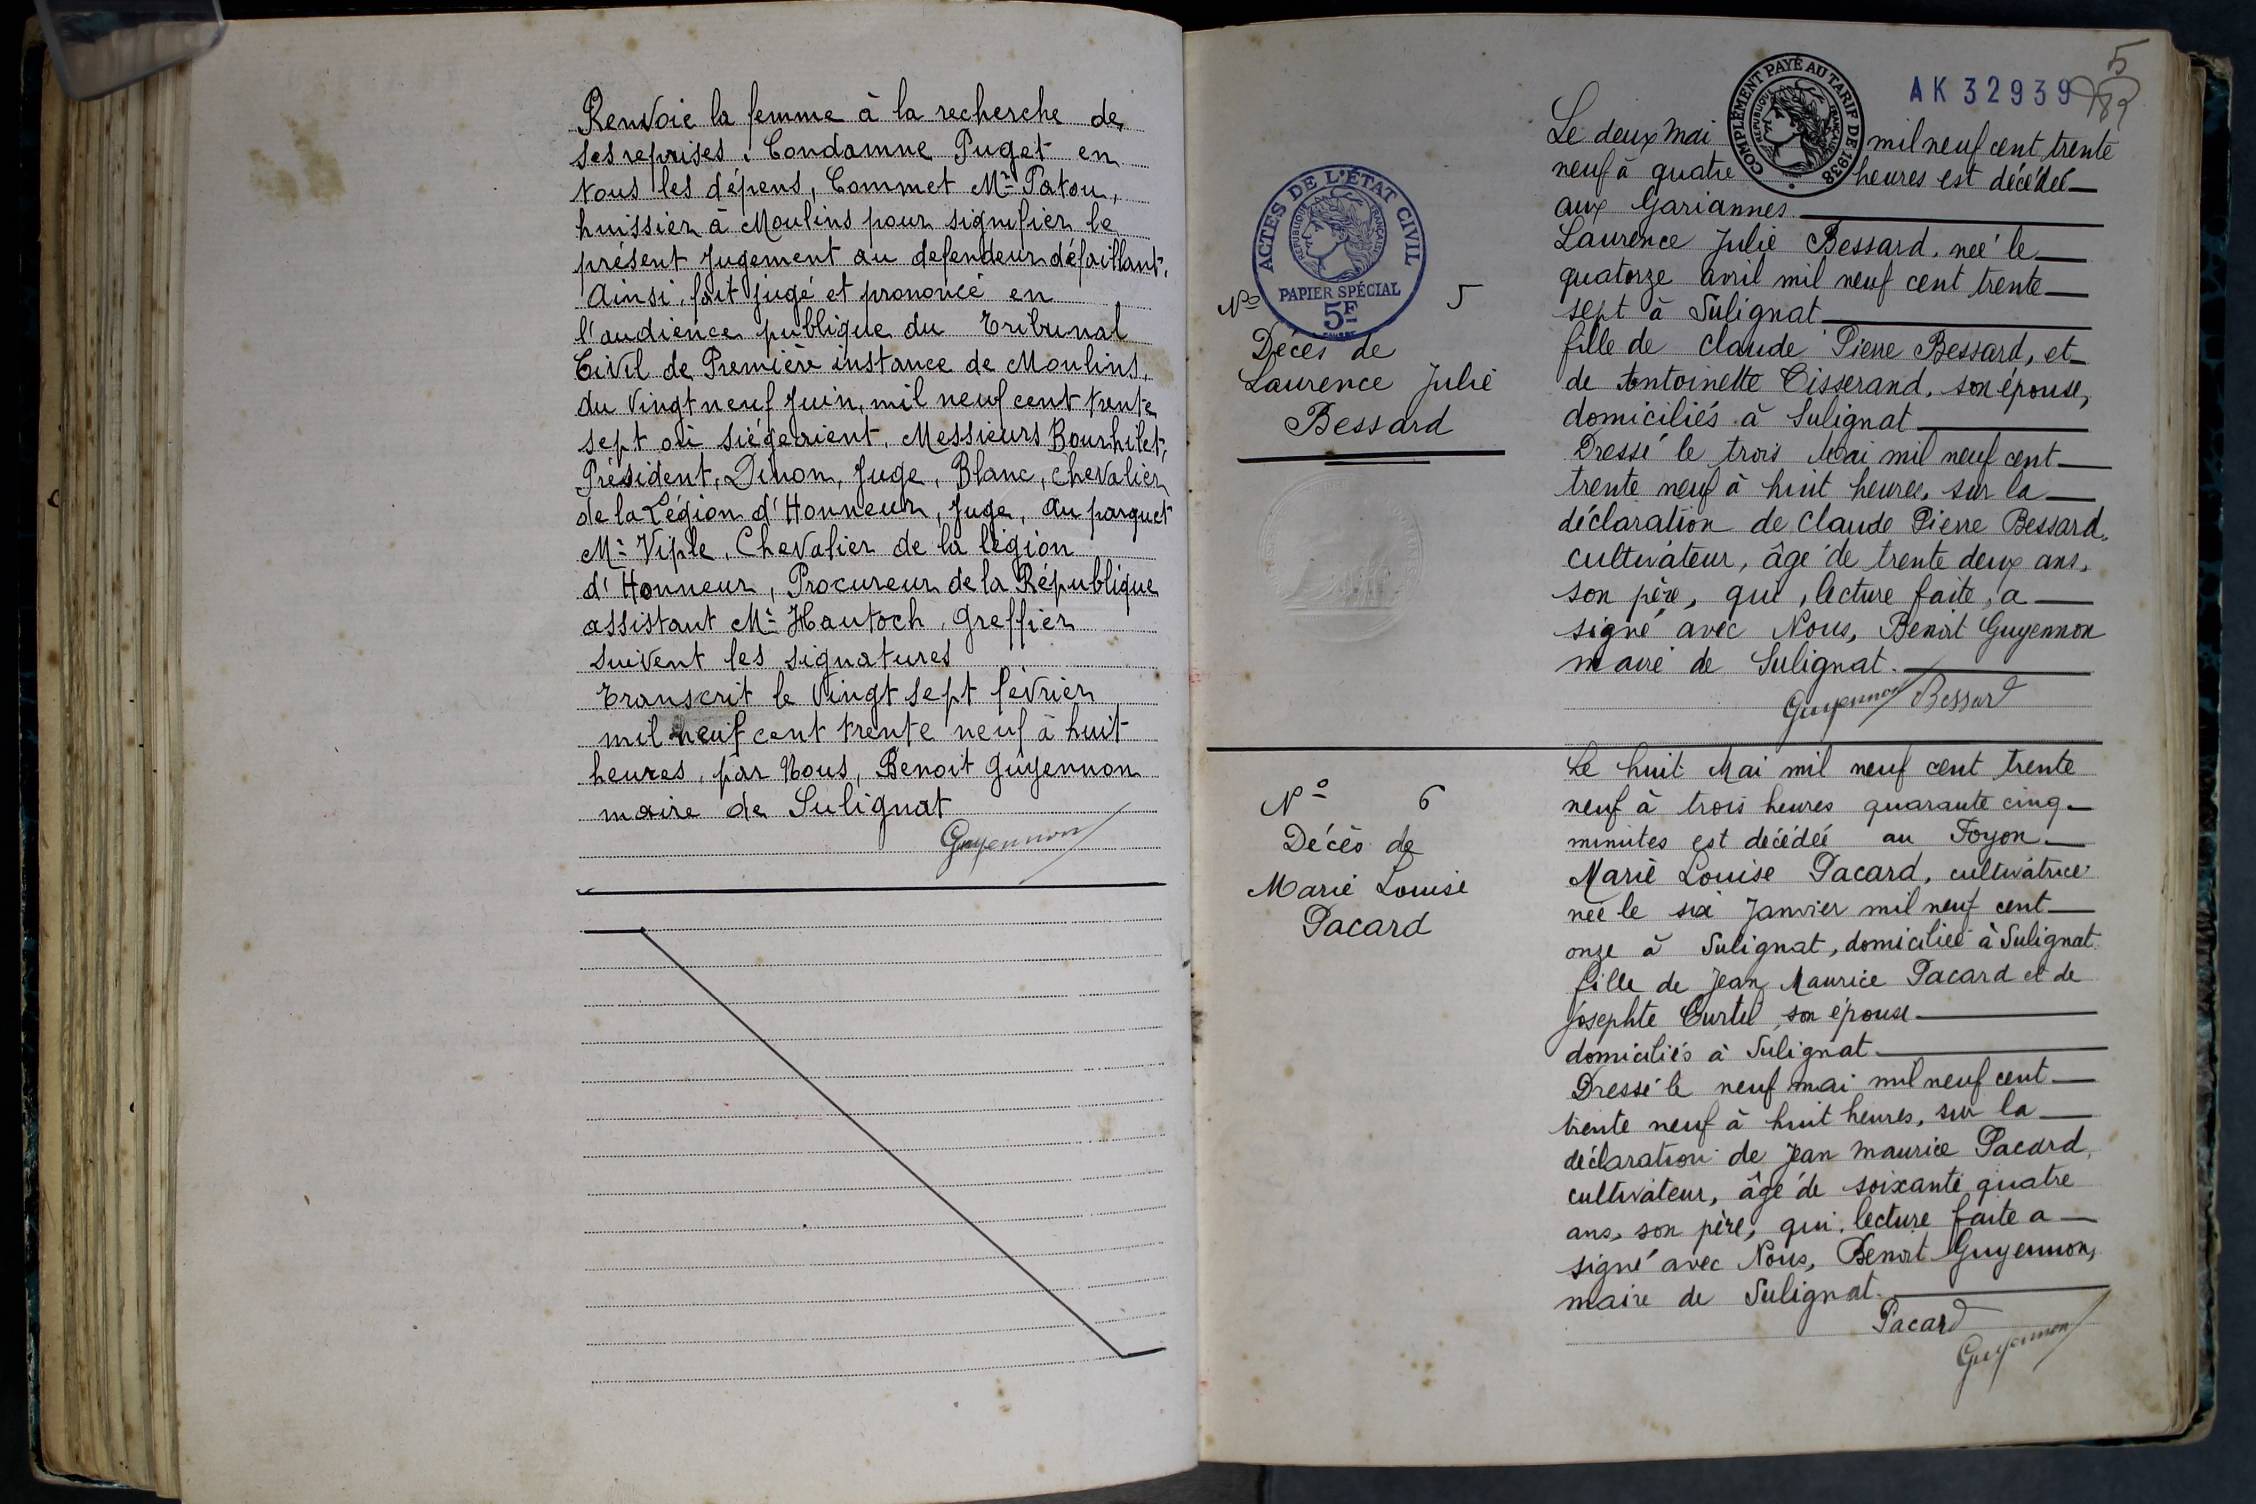 Renvoie la femme à la recherche de
ses reprises. Condamne Puget en
tous les dépens, Commet Mr Patou,
huissier à Moulins pour signifier le
présent Jugement au defendeur défaillant.
Ainsi fait jugé et prononcé en
l'audience publique du Tribunal
Civil de Première instance de Moulins,
du vingt neuf Juin, mil neuf cent trente
sept où siégeaient, Messieurs
Président, Dinon, Juge, Blanc, chevalier
de la Légion d'Honneur, Juge, Au parquet
Mr Viple, Chevalier de la légion
d'Honneur, Procureur de la République
assistant Mr Hautoch, Greffier
suivent les signatures
Transcrit le vingt sept février
mil neuf cent trente neuf à huit
heures, par Nous, Benoit Guyennon
maire de Sulignat
Guyennon
5
AK 32939
COMPLÉMENT PAYÉ AU TARIF DE 1938
RÉPUBLIQUE FRANÇAISE
ACTES DE L'ÉTAT CIVIL
RÉPUBLIQUE FRANÇAISE
PAPIER SPÉCIAL
5F
No 5
Décès de
Laurence Julie
Bessard
Le deux Mai mil neuf cent trente
neuf à quatre heures est décédée
aux Gariannes
Laurence Julie Bessard, née le
quatorze avril mil neuf cent trente
sept à Sulignat
fille de Claude Pierre Bessard, et
de Antoinette Tisserand, son épouse,
domiciliés à Sulignat
Dressé le trois Mai mil neuf cent
trente neuf à huit heures, sur la
déclaration de Claude Pierre Bessard,
cultivateur, âgé de trente deux ans,
son père, qui, lecture faite, a
signé avec Nous, Benoit Guyennon
maire de Sulignat.
Guyennon Bessard
No 6
Décès de
Marie Louise
Pacard
Le huit Mai mil neuf cent trente
neuf à trois heures quarante cinq
minutes est décédée au Foyon
Marie Louise Pacard, cultivatrice
née le six Janvier mil neuf cent
onze à Sulignat, domiciliée à Sulignat
fille de Jean Maurice Pacard et de
Josephte Curtel, son épouse
domiciliés à Sulignat
Dressé le neuf mai mil neuf cent
trente neuf à huit heures, sur la
déclaration de Jean Maurice Pacard,
cultivateur, âgé de soixante quatre
ans, son père, qui, lecture faite a
signé avec Nous, Benoit Guyennon,
maire de Sulignat.
Pacard
Guyennon